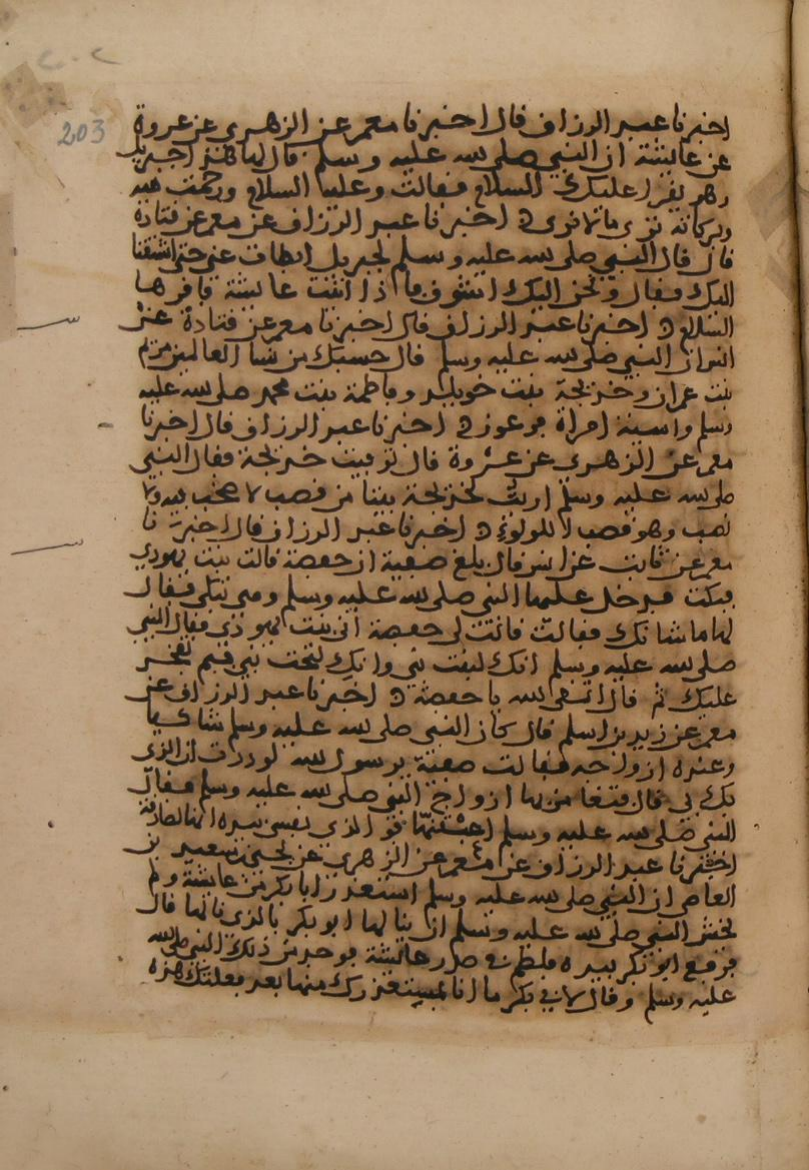 203
اخبرنا عبد الرزاق قال اخبرنا معمر عن الزهري عن عروة
عن عايشة ان النبي صلى الله عليه وسلم قال لها هذا جبريل
وهو يقرا عليك السلام فقالت وعليه السلام ورحمت الله
وبركاته ترى ما لا نرى اخبرنا عبد الرزاق عن معمر عن قتادة
قال قال النبي صلى الله عليه وسلم لجبريل ابطات عني حتى اشتقنا
اليك فقال ونحن اليك اشوق فاذا اتيت عايشة فاقرها
السلام اخبرنا عبد الرزاق قال اخبرنا معمر عن قتادة عن
انس ان النبي صلى الله عليه وسلم قال حسبك من نسا العالمين مريم
بنت عمران وخديجة بنت خويلد وفاطمة بنت محمد صلى الله عليه
وسلم واسية امراة فرعون اخبرنا عبد الرزاق قال اخبرنا
معمر عن الزهري عن عروة قال توفيت خديجة فقال النبي
صلى الله عليه وسلم اريت لخديجة بيتا من قصب لا صخب فيه ولا
نصب وهو قصب اللولؤ اخبرنا عبد الرزاق قال اخبرنا
معمر عن ثابت عن انس قال بلغ صفية ان حفصة قالت بنت يهودي
فبكت فدخل عليها النبي صلى الله عليه وسلم وهي تبكي فقال
لها ما شانك فقالت قالت لي حفصة اني بنت يهودي فقال النبي
صلى الله عليه وسلم انك لبنت نبي وانك لتحت نبي فبم تفخر
عليك ثم قال اتقي الله يا حفصة اخبرنا عبد الرزاق عن
معمر عن زيد بن اسلم قال كان النبي صلى الله عليه وسلم شاكيا
وعنده ازواجه فقالت صفية يرسول الله لوددت ان الذي
بك بي قال فتغامز بها ازواج النبي صلى الله عليه وسلم فقال
النبي صلى الله عليه وسلم فو الذي نفسي بيده انها لصادقة
اخبرنا عبد الرزاق عن معمر عن الزهري عن يحيى بن سعيد بن
العاص ان النبي صلى الله عليه وسلم استعذر ابا بكر من عايشة ولم
يخش النبي صلى الله عليه وسلم ان ينالها ابو بكر بالذي نالها قال
فرفع ابو بكر بيده فلطم في صدر عايشة فوجد من ذلك النبي صلى الله
عليه وسلم وقال لابي بكر ما انا بمستعذرك منها بعد فعلتك هذه